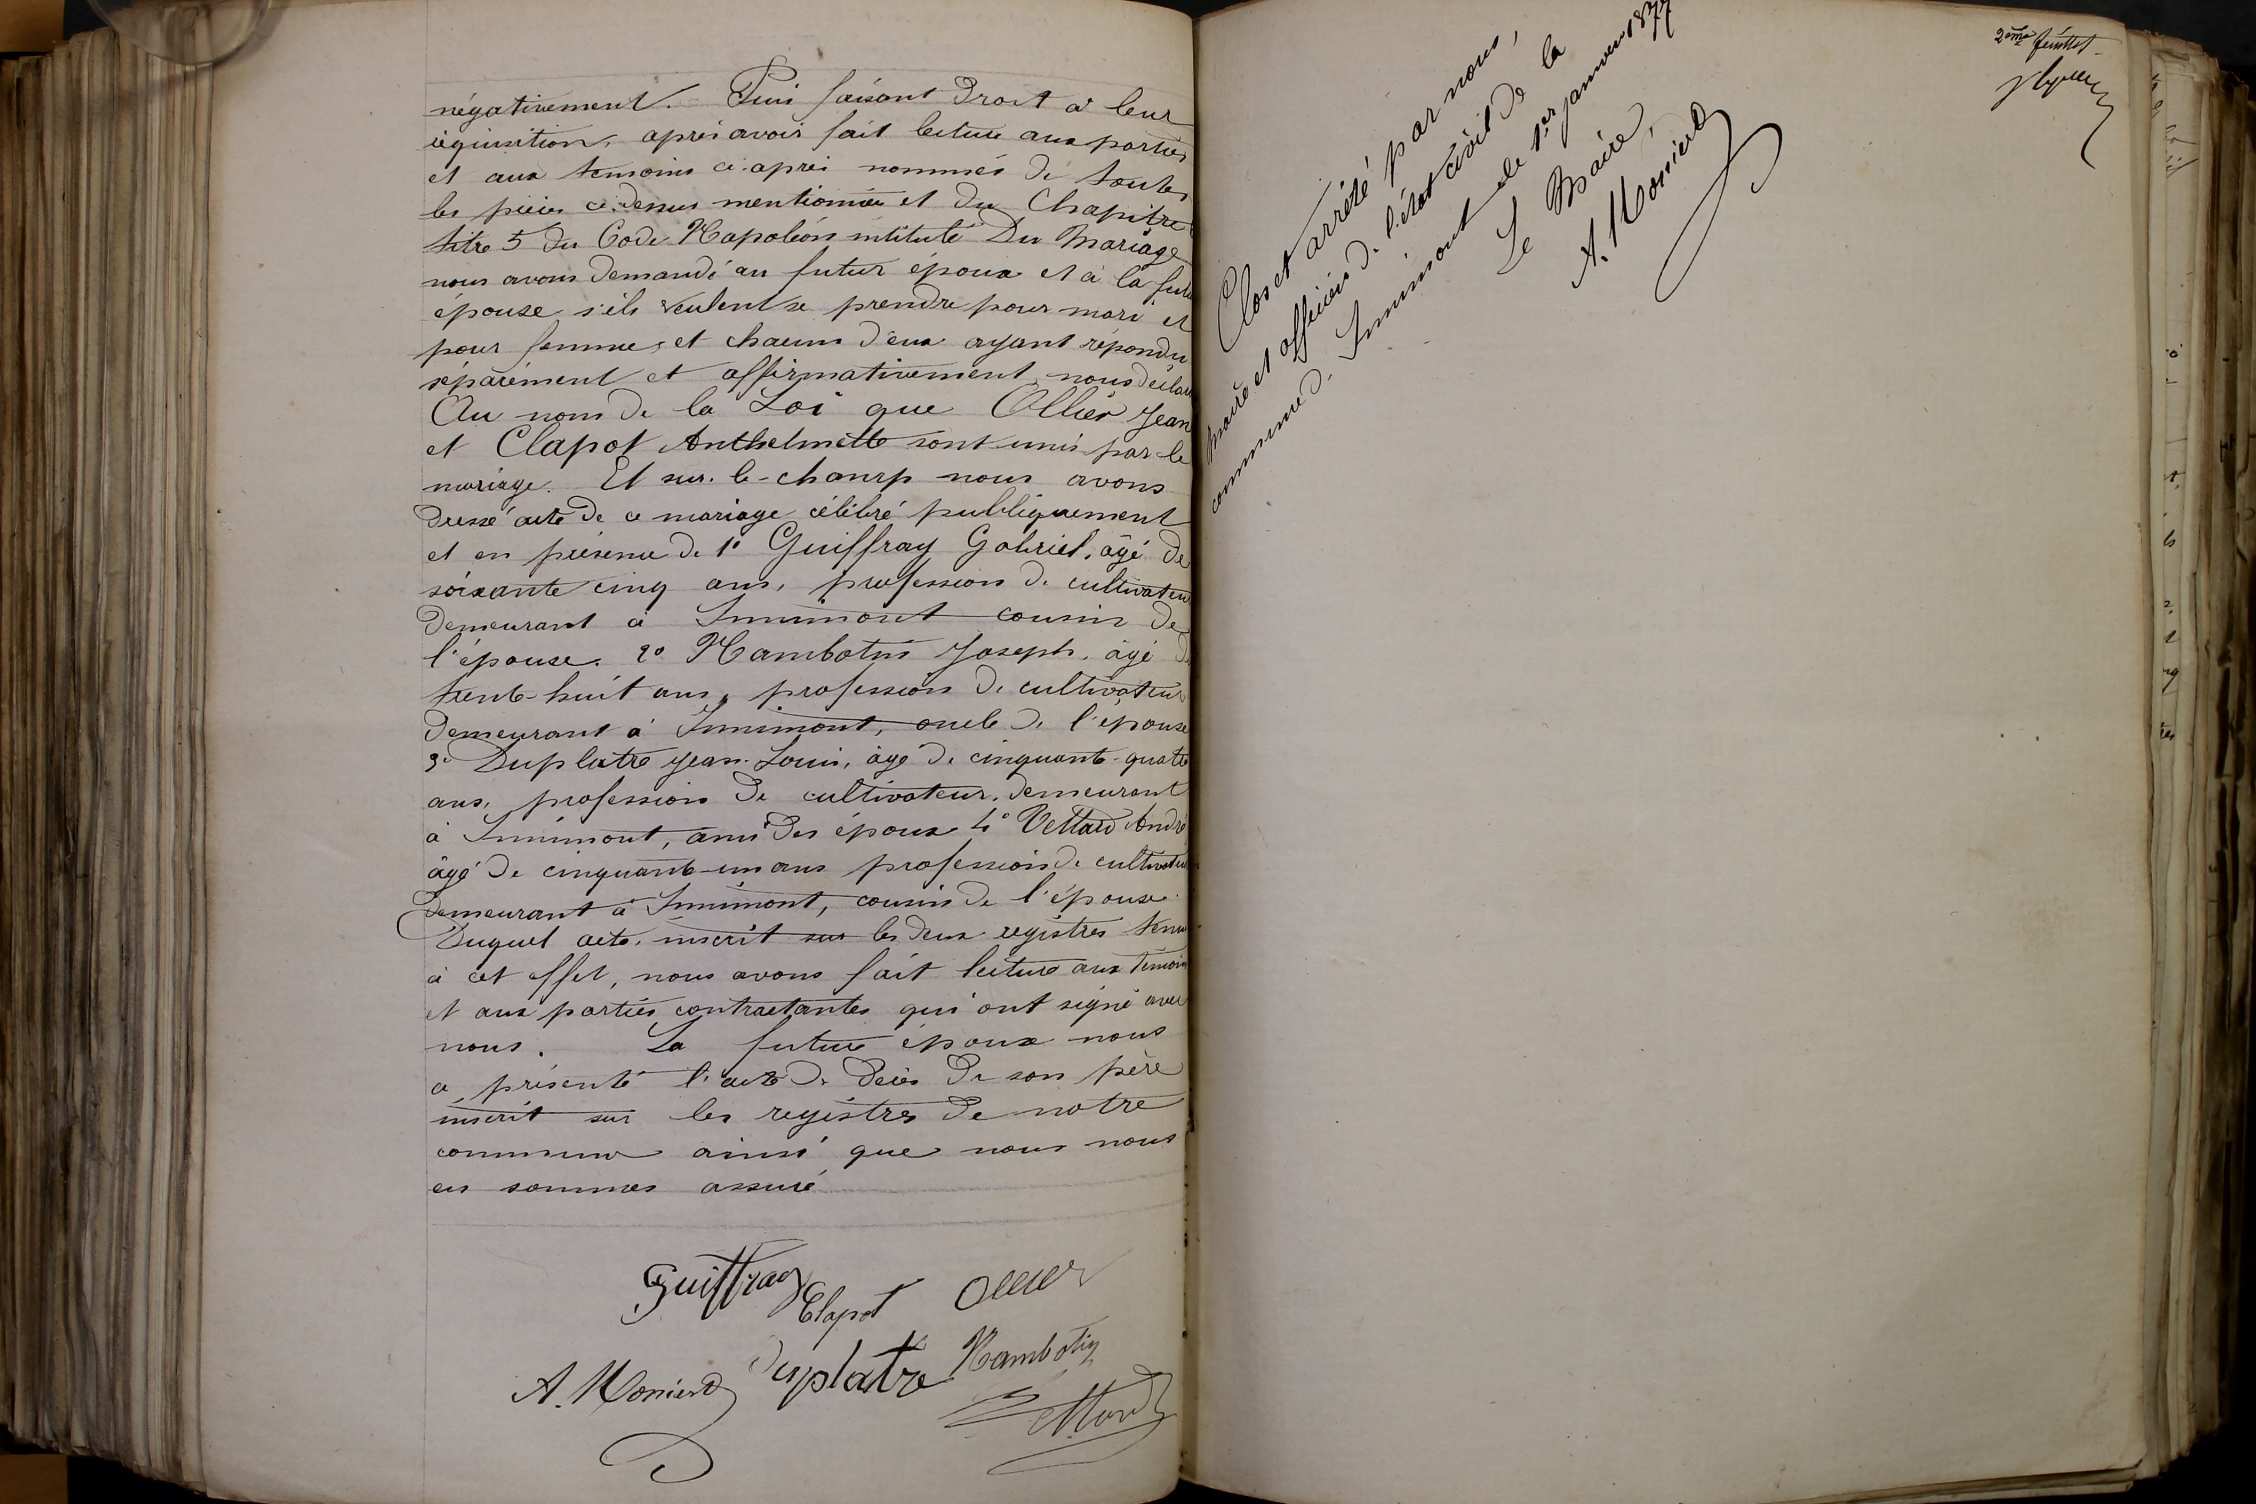 négativement. Puis faisant Droit à leur
réquisition, après avoir fait lecture aux parties
et aux temoins ci-après nommés de toutes
les pièces ci-dessus mentionnées et du Chapitre
titre 5 du Code Napoléon intitulé Du Mariage
nous avons demandé au futur époux et à la
épouse s'ils veulent se prendre pour mari et
pour femme, et chacun d'eux ayant répondu
séparément et affirmativement, nous
Au nom de la Loi que Ollier Jean
et Clapot Anthelmette sont unis par le
mariage. Et sur-le-champ nous avons
dressé acte de ce mariage célébré publiquement
et en présence de 1° Guiffray Gabriel, âgé de
soixante cinq ans, profession de cultivateur
demeurant à Innimont cousin de
l'épouse. 2° Nambotin Joseph, âgé de
trente-huit ans, profession de cultivateur
demeurant à Innimont, oncle de l'épouse
3° Duplatre Jean-Louis, âgé de cinquante-quatre
ans, profession de cultivateur, demeurant
à Innimont, ami des époux 4° Vettard André
âgé de cinquante-un ans profession de cultivateur
demeurant à Innimont, cousin de l'épouse.
Duquel acte, inscrit sur les deux registres tenus
à cet effet, nous avons fait lecture aux témoins
et aux parties contractantes qui ont signé avec
nous. La future épouse nous
a présenté l'acte de décès de son père
inscrit sur les registres de notre
commune ainsi que nous nous
en sommes assuré
Guiffray
Clapot Ollier
A. Monierd Duplatre Nambotin
Vettard
Clos et arrêté par nous,
Maire et officier de l'état civil de la
commune d'Innimont le 1er janvier 1877
Le Maire,
A. Monierd
2ème feuillet